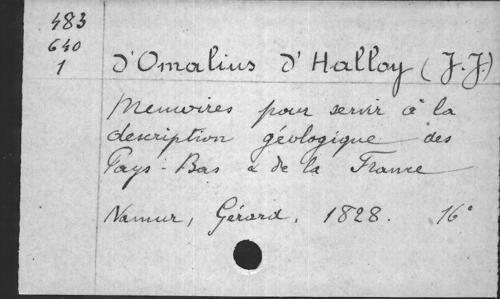 483
640
1
d'Omalius d'Halloy (J.J.)
Memoires pour servir à la
description géologique des
Pays-Bas & de la France
Namur, Gérard, 1828. 16°